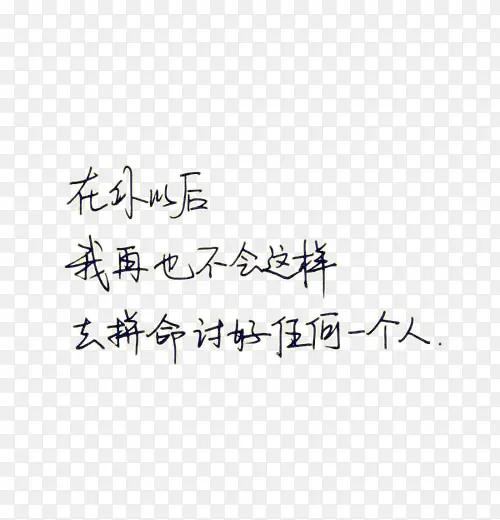 在尔以后
我再也不会这样
去拼命讨好任何一个人.